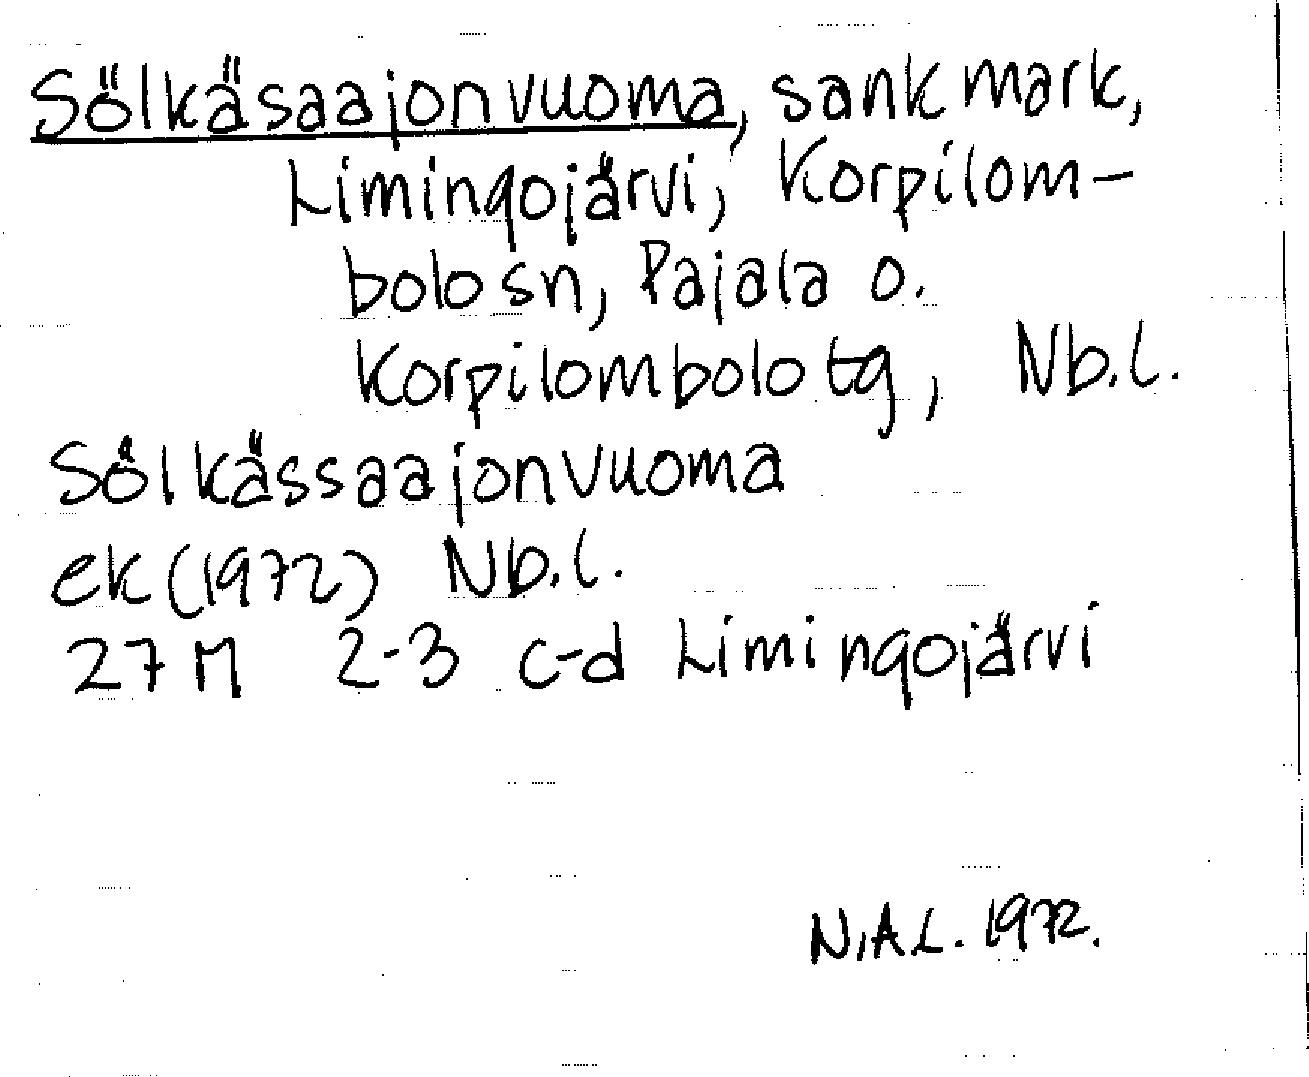 Sölkäsaajonvuoma, sank mark,
Limingojärvi, Korpilom-
bolo sn, Pajala o.
Korpilombolo tg, Nb.l.
Sölkässaajonvuoma
ek (1972) Nb.l.
27 M 2-3 c-d Limingojärvi
N.A.L. 1972.